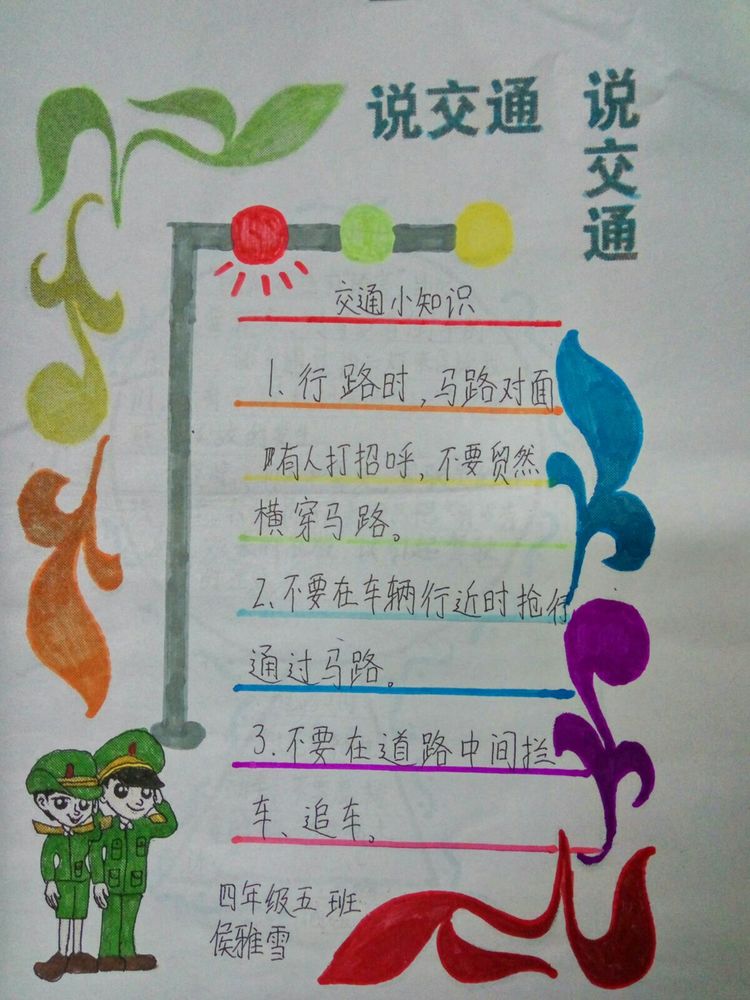 说交通
说交通
交通小知识
1、行路时,马路对面
有人打招呼,不要贸然
横穿马路。
2、不要在车辆行近时抢行
通过马路。
3.不要在道路中间拦
车、追车。
四年级五班
侯雅雪